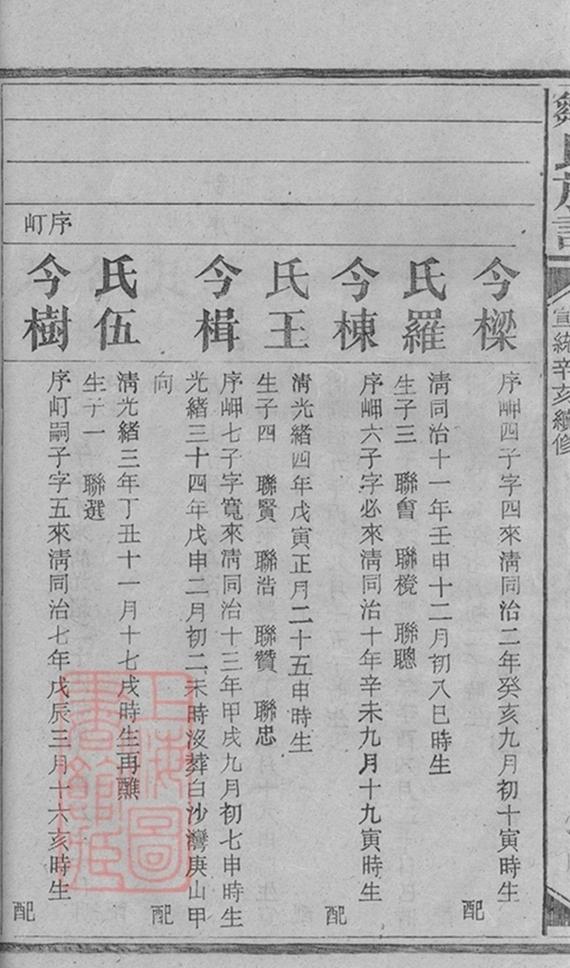 鄒氏族譜
宣統辛亥續修
今樑
序岬四子字四來清同治二年癸亥九月初十寅時生
配
羅氏
清同治十一年壬申十二月初八巳時生
生子三 聯會 聯欖 聯聰
今棟
序岬六子字必來清同治十年辛未九月十九寅時生
配
王氏
清光緒四年戊寅正月二十五申時生
生子四 聯賢 聯浩 聯贊 聯忠
今楫
序岬七子字寬來清同治十三年甲戌九月初七申時生
光緒三十四年戊申二月初二未時沒葬白沙灣庚山甲
向
配
伍氏
清光緒三年丁丑十一月十七戌時生再醮
生子一 聯選
序㠉
今樹
序㠉嗣子字五來清同治七年戊辰三月十六亥時生
配
上海圖書館藏